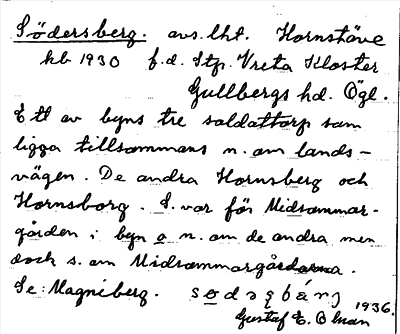 Södersberg. avs. lht. Hornstäve
kb 1930 f.d. Stp. Vreta Kloster
Gullbergs hd. Ögl.
Ett av byns tre soldattorp sam
ligga tillsammans n. om lands-
vägen. De andra Hornsberg och
Hornsborg. S. var för Midsommar-
gården i byn o n. om de andra men
dock s. om Midsommargårdarna.
Se: Magniberg.
1936.
Gustaf E. Oman